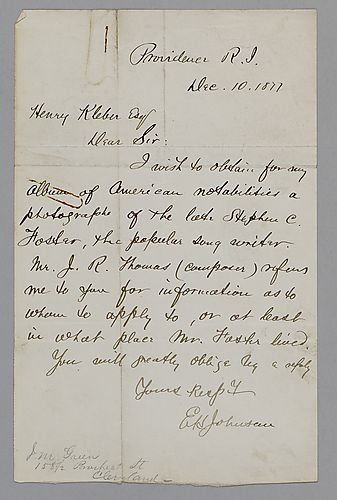 Providence R.I.
Dec. 10. 1877
Henry Kleber Esq
Dear Sir:
I wish to obtain for my
album of American notabilities a
photographe of the late Stephen C.
Foster, the popular song writer.
Mr. J. R. Thomas (composer) refers
me to you for information as to
whom to apply to, or at least
in what place Mr. Foster lived.
You will greatly oblige by a reply
Yours Resp'y
E Johnson
J. M. Green
Prospect St
Cleveland